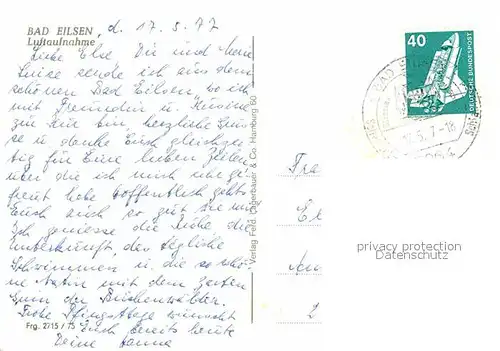 BAD EILSEN, d. 17.5.77
Luftaufnahme
Liebe Else Dir und
Luise sende ich aus dem
schönen Bad Eilsen, wo ich
mit Freundin u. Kusine
zur Kur bin, herzliche Grüs-
se u. danke Euch gleichzei-
tig für Eure lieben Zeilen,
über die ich mich sehr ge-
freut habe hoffentlich gehts
Euch auch so gut wie mir
Ich genieße die Ruhe die
Unterkunft, das tägliche
Schwimmen u. die so schö-
ne Natur mit dem zarten
Grün der Buchenwälder.
Frohe Pfingsttage wünscht
Euch bereits heute
Deine Hanna
Frg. 2715 / 75
Verlag Ferd. Lagerbauer & Co. Hamburg 60
40
DEUTSCHE BUNDESPOST
BAD
Fra
El
An
2
privacy protection
Datenschutz